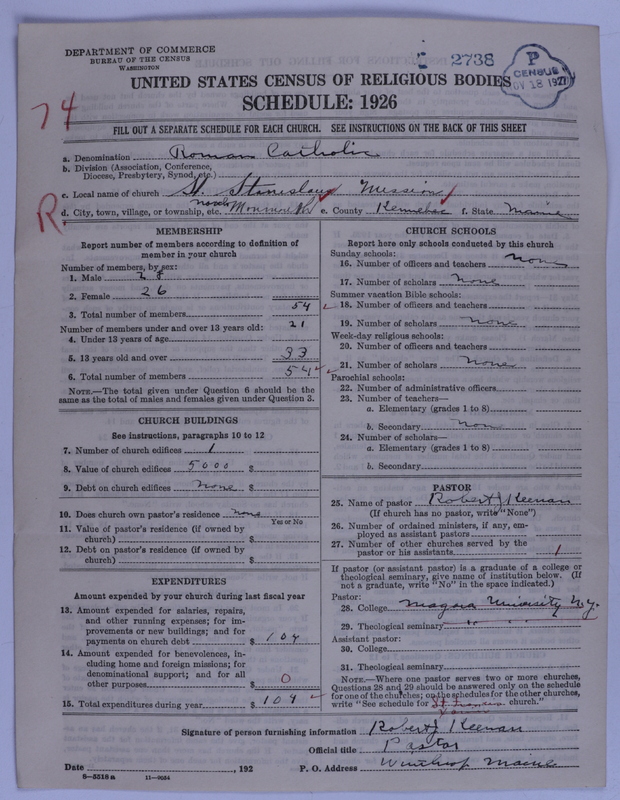 DEPARTMENT OF COMMERCE
BUREAU OF THE CENSUS
WASHINGTON
2738
P
CENSUS
NOV 18 1927
UNITED STATES CENSUS OF RELIGIOUS BODIES
SCHEDULE: 1926
74
FILL OUT A SEPARATE SCHEDULE FOR EACH CHURCH. SEE INSTRUCTIONS ON THE BACK OF THIS SHEET
a. Denomination Roman Catholic
b. Division (Association, Conference,
Diocese, Presbytery, Synod, etc.)
c. Local name of church St. Stanislaus Mission
R.
d. City, town, village, or township, etc. North Monmouth e. County Kennebec f. State Maine
MEMBERSHIP
Report number of members according to definition of
member in your church
Number of members, by sex:
1. Male 28
2. Female 26
3. Total number of members 54
Number of members under and over 13 years old:
4. Under 13 years of age 21
5. 13 years old and over 33
6. Total number of members 54
NOTE.—The total given under Question 6 should be the
same as the total of males and females given under Question 3.
CHURCH BUILDINGS
See instructions, paragraphs 10 to 12
7. Number of church edifices 1
8. Value of church edifices 5000 $
9. Debt on church edifices None $
10. Does church own pastor's residence none
Yes or No
11. Value of pastor's residence (if owned by
church) $
12. Debt on pastor's residence (if owned by
church) $
EXPENDITURES
Amount expended by your church during last fiscal year
13. Amount expended for salaries, repairs,
and other running expenses; for im-
provements or new buildings; and for
payments on church debt $ 104
14. Amount expended for benevolences, in-
cluding home and foreign missions; for
denominational support; and for all
other purposes $ 0
15. Total expenditures during year $ 104
CHURCH SCHOOLS
Report here only schools conducted by this church
Sunday schools:
16. Number of officers and teachers none
17. Number of scholars None
Summer vacation Bible schools:
18. Number of officers and teachers
19. Number of scholars none
Week-day religious schools:
20. Number of officers and teachers
21. Number of scholars None
Parochial schools:
22. Number of administrative officers
23. Number of teachers—
a. Elementary (grades 1 to 8)
b. Secondary None
24. Number of scholars—
a. Elementary (grades 1 to 8)
b. Secondary
PASTOR
25. Name of pastor Robert J Keenan
(If church has no pastor, write "None")
26. Number of ordained ministers, if any, em-
ployed as assistant pastors
27. Number of other churches served by the
pastor or his assistants 1
If pastor (or assistant pastor) is a graduate of a college or
theological seminary, give name of institution below. (If
not a graduate, write "No" in the space indicated.)
Pastor:
28. College Niagara University N.Y.
29. Theological seminary " "
Assistant pastor:
30. College
31. Theological seminary
NOTE.—Where one pastor serves two or more churches,
Questions 28 and 29 should be answered only on the schedule
for one of the churches; on the schedules for the other churches,
write "See schedule for St. Francis church."
Signature of person furnishing information Robert J Keenan
Official title Pastor
Date , 192 P. O. Address Winthrop Maine
8-5518a 11-9054